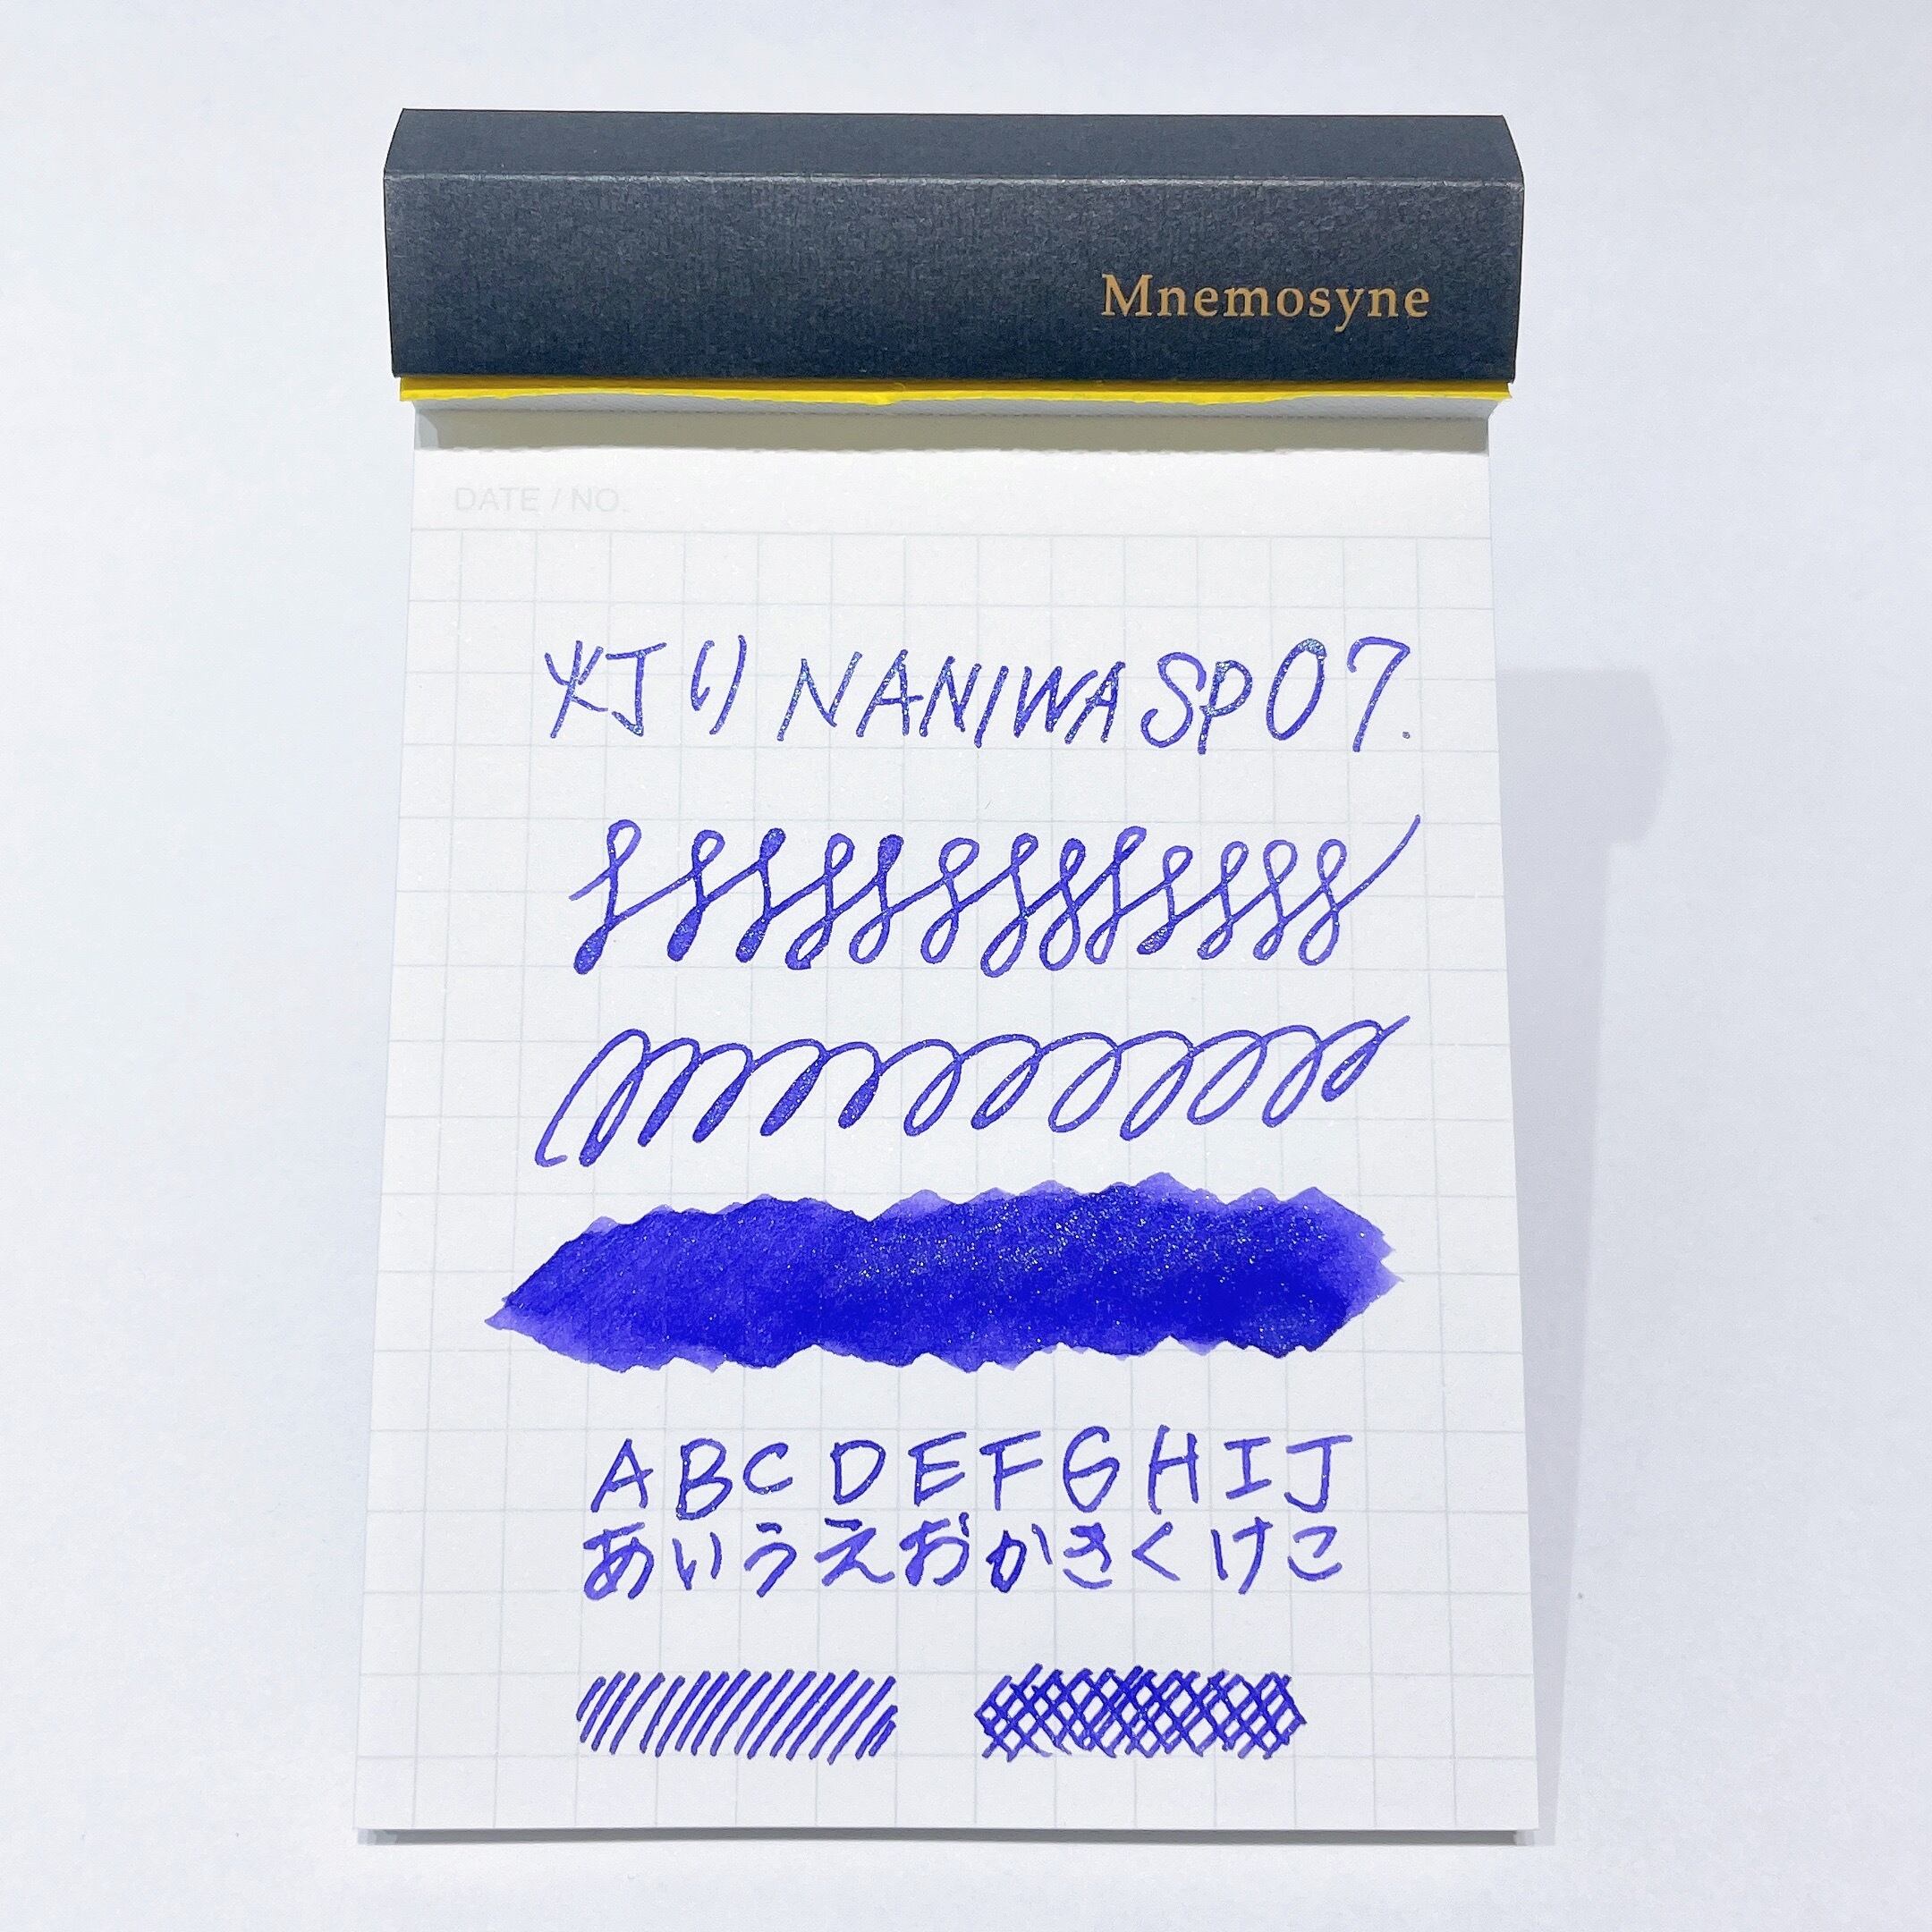 Mnemosyne
DATE / NO.
灯り NANIWA SP 07.
ABCDEFGHIJ
あいうえおかきくけこ